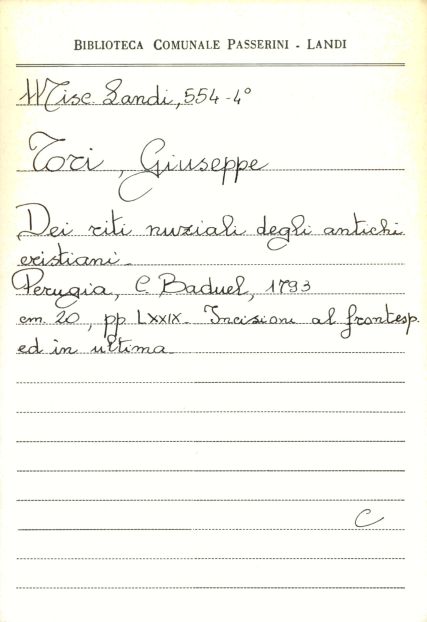 BIBLIOTECA COMUNALE PASSERINI - LANDI
Misc. Landi, 554-4°
Tozi, Giuseppe
Dei riti nuziali degli antichi
cristiani.
Perugia, C. Baduel, 1793
cm. 20, pp. LXXIX. Incisioni al frontesp.
ed in ultima.
C